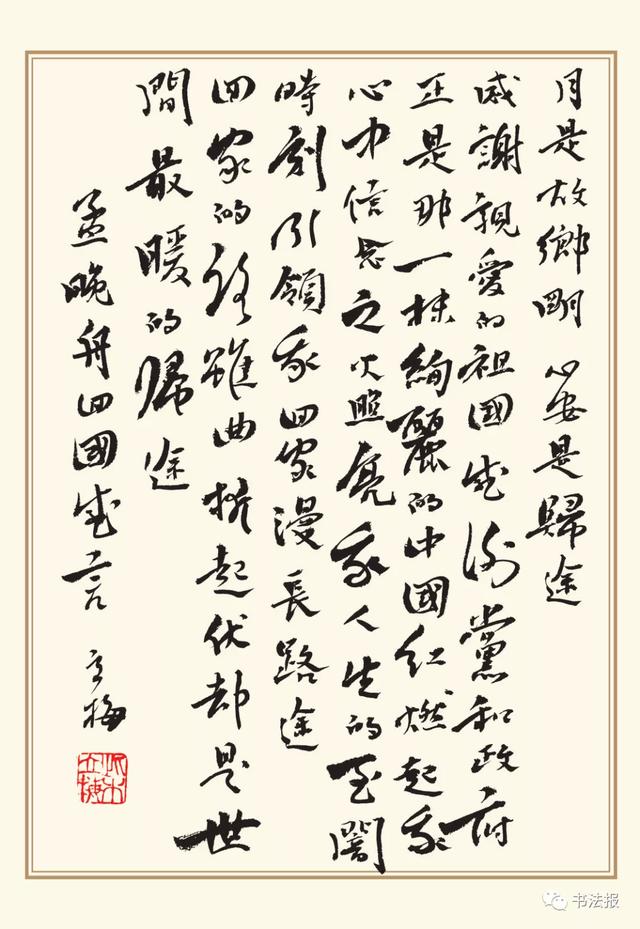 月是故鄉明心安是歸途
感謝親愛的祖國感謝黨和政府
正是那一抹絢麗的中國红燃起我
心中信念之火照亮我人生的至闇
時刻引領我回家漫長路途
回家的路雖曲折起伏却是世
間最暖的歸途
孟晚舟回國感言 立梅
书法报